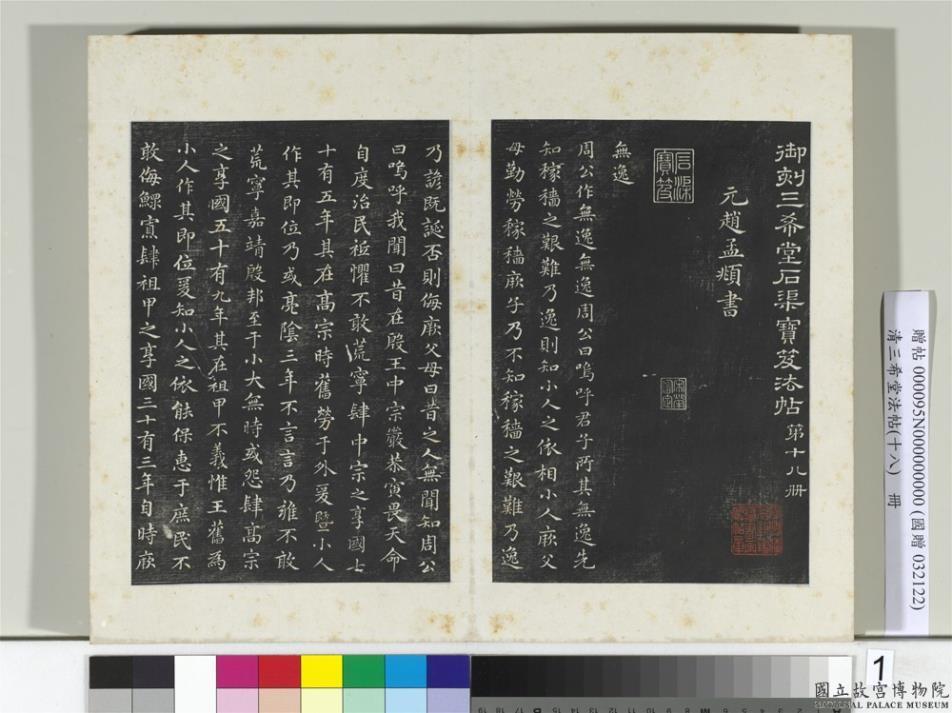 御刻三希堂石渠寶笈法帖 第十八冊
元趙孟頫書
石渠寶笈
無逸
周公作無逸無逸周公曰嗚呼君子所其無逸先
知稼穡之艱難乃逸則知小人之依相小人厥父
母勤勞稼穡厥子乃不知稼穡之艱難乃逸
乃諺既誕否則侮厥父母曰昔之人無聞知周公
曰嗚呼我聞曰昔在殷王中宗嚴恭寅畏天命
自度治民祗懼不敢荒寧肆中宗之享國七
十有五年其在高宗時舊勞于外爰暨小人
作其即位乃或亮陰三年不言言乃雍不敢
荒寧嘉靖殷邦至于小大無時或怨肆高宗
之享國五十有九年其在祖甲不義惟王舊為
小人作其即位爰知小人之依能保惠于庶民不
敢侮鰥寡肆祖甲之享國三十有三年自時厥
贈帖 000095N000000000 (國贈 032122)
清三希堂法帖(十八) 冊
1
國立故宮博物院
NATIONAL PALACE MUSEUM